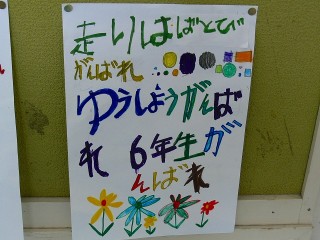 走りはばとび
がんばれ
ゆうしょうがんば
れ 6年生が
んばれ